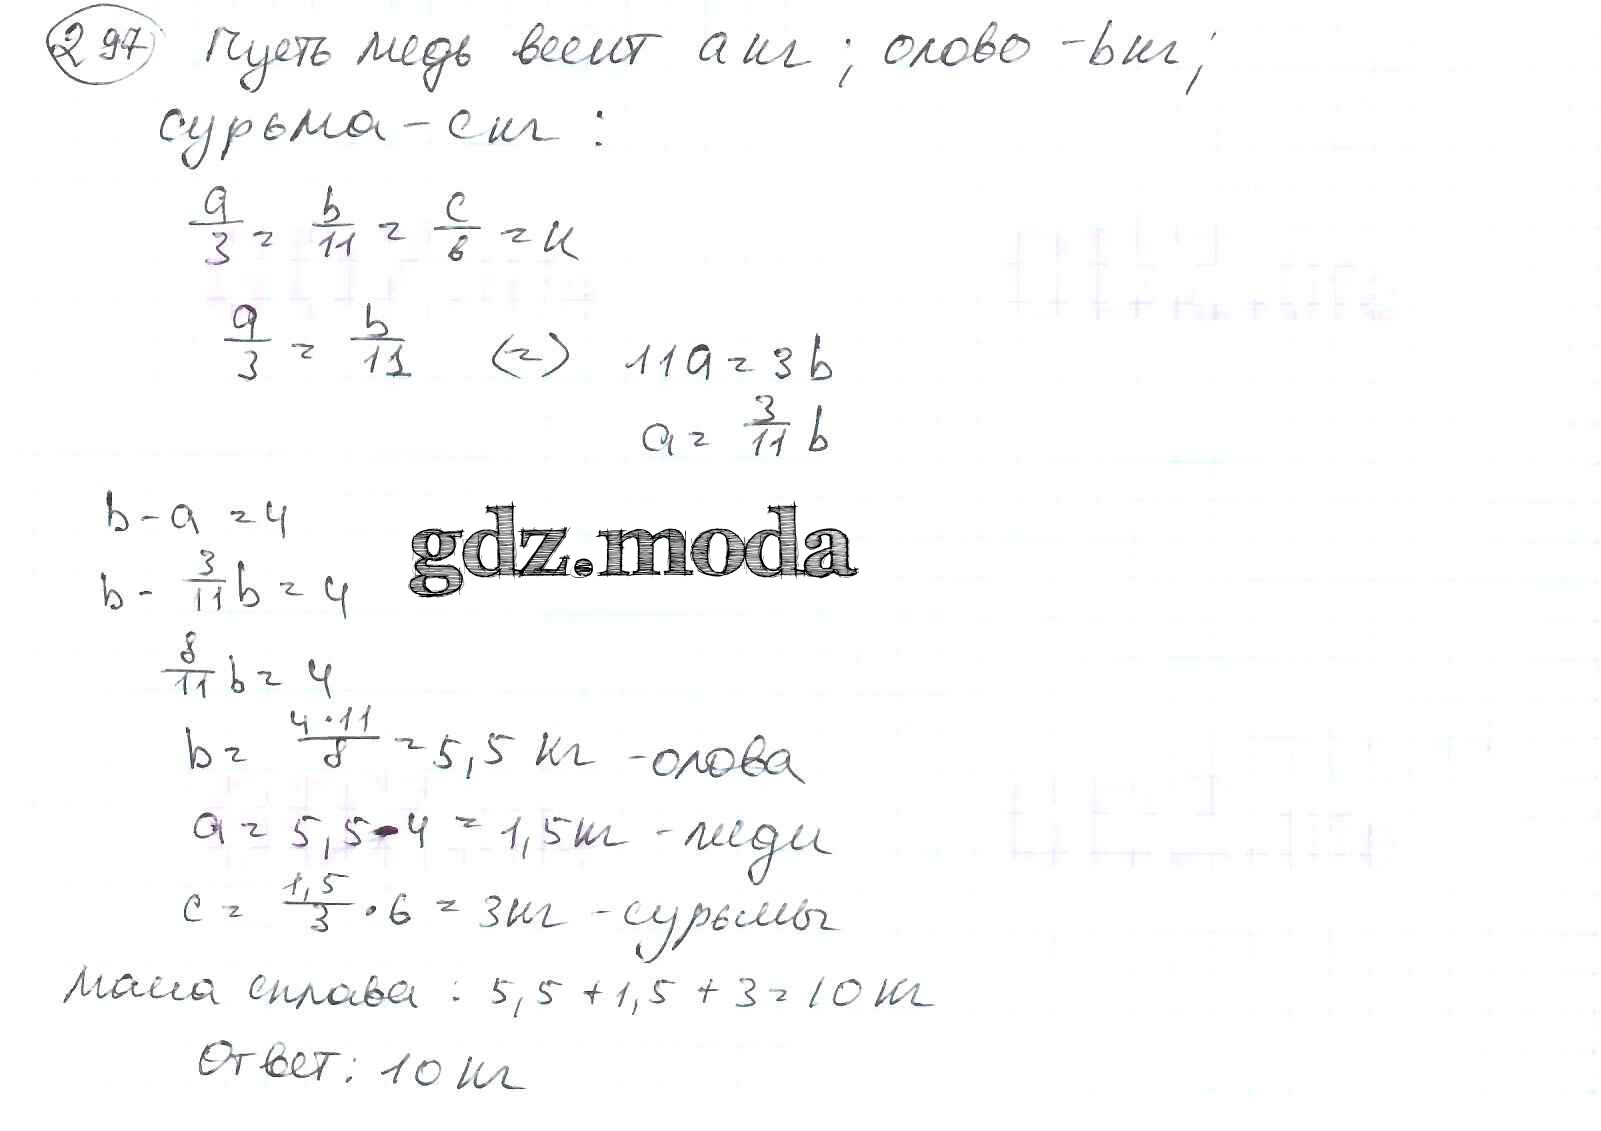 297 Пусть медь весит a кг; олово - b кг;
сурьма - c кг:
a/3 = b/11 = c/6 = к
a/3 = b/11 (=) 11a = 3b
a = 3/11 b
b - a = 4
gdz.moda
b - 3/11 b = 4
8/11 b = 4
b = 4·11/8 = 5,5 кг - олова
a = 5,5 - 4 = 1,5 кг - меди
c = 1,5/3 · 6 = 3 кг - сурьмы
Масса сплава: 5,5 + 1,5 + 3 = 10 кг
Ответ: 10 кг